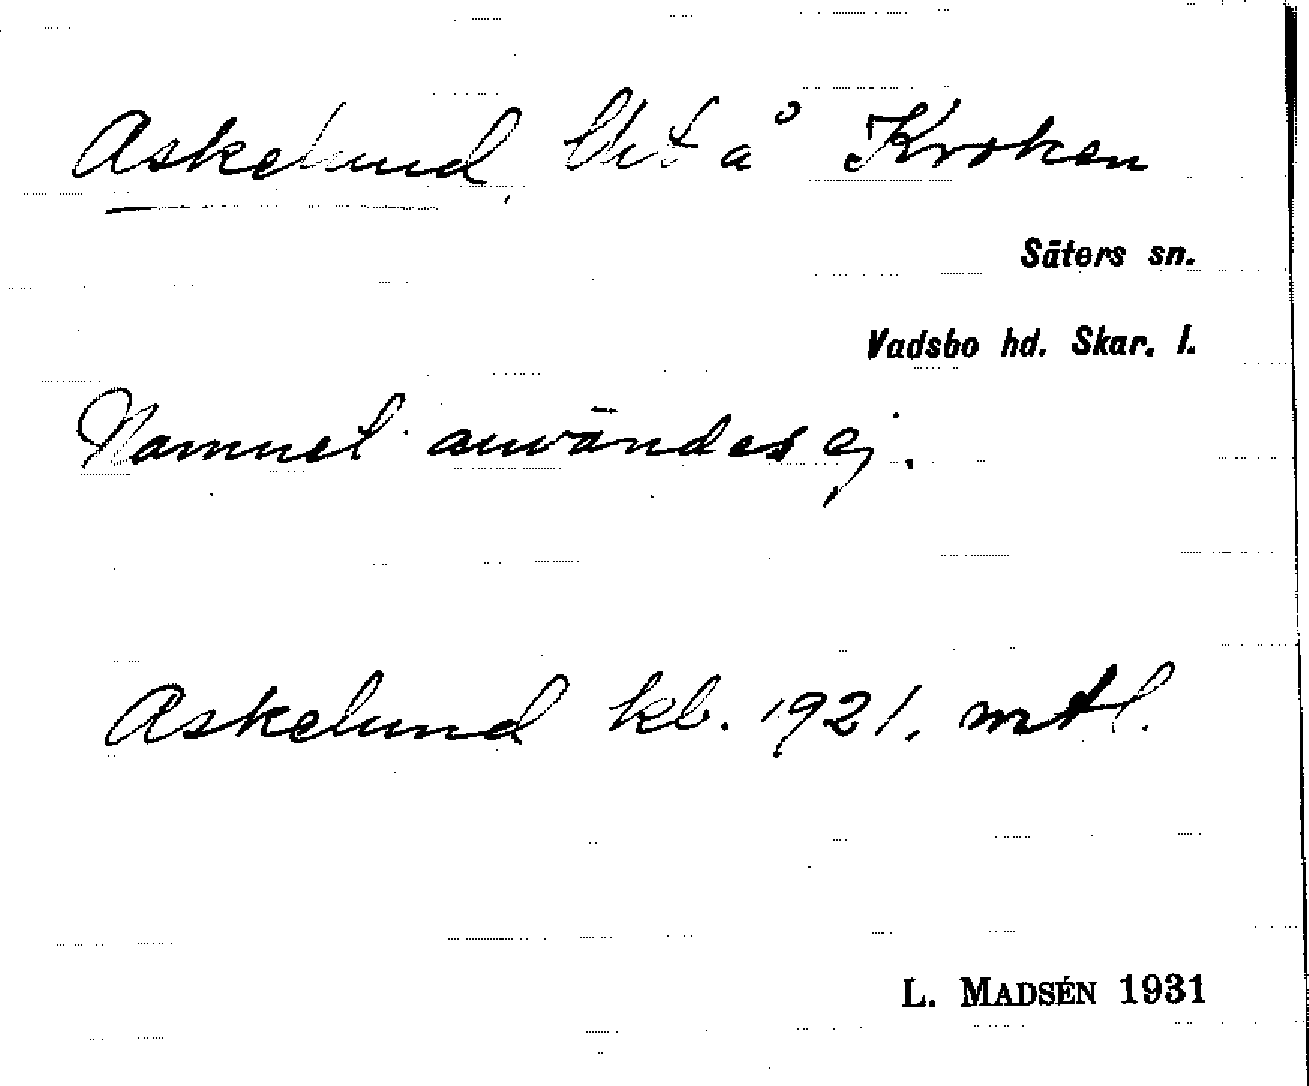 Askelund, lht å Kroken
Säters sn.
Vadsbo hd. Skar. l.
Namnet användes ej.
Askelund kb. 1921. mtl.
L. MADSÉN 1931